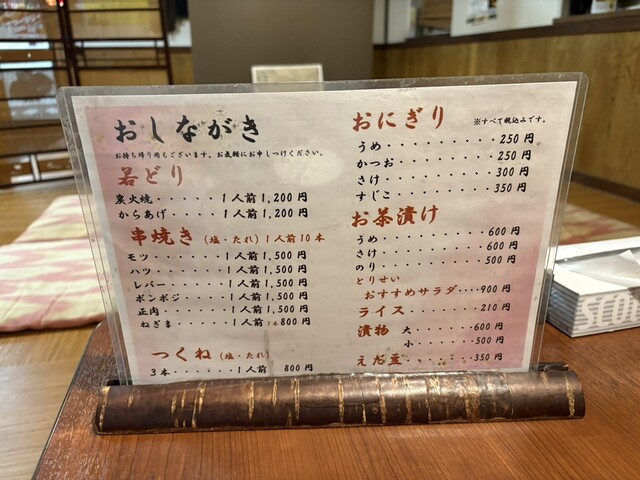 おしながき
お持ち帰り用もございます。お気軽にお申しつけください。
若どり
炭火焼・・・・・・１人前 1,200 円
からあげ・・・・・１人前 1,200 円
串焼き（塩・たれ）１人前10本
モツ・・・・・・・１人前 1,500 円
ハツ・・・・・・・１人前 1,500 円
レバー・・・・・・１人前 1,500 円
ボンボジ・・・・・１人前 1,500 円
正肉・・・・・・・１人前 1,500 円
ねぎま・・・・・・１人前 800 円
つくね（塩・たれ）
３本・・・・・・１人前 800 円
おにぎり ※すべて税込みです。
うめ・・・・・・・・・・・250 円
かつお・・・・・・・・・・250 円
さけ・・・・・・・・・・・300 円
すじこ・・・・・・・・・・350 円
お茶漬け
うめ・・・・・・・・・・・600 円
さけ・・・・・・・・・・・600 円
のり・・・・・・・・・・・500 円
とりせい
おすすめサラダ・・・900 円
ライス・・・・・・・・210 円
漬物 大・・・・・・・600 円
小・・・・・・・500 円
えだ豆・・・・・・・・350 円